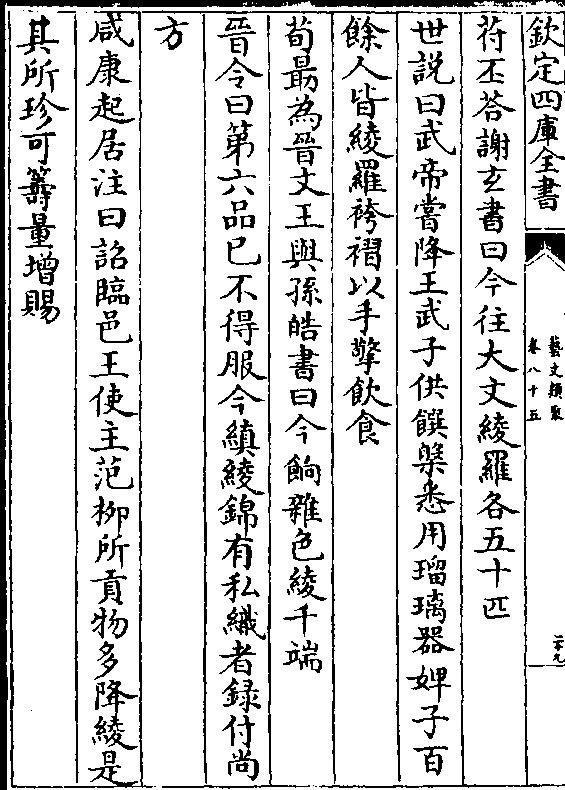 欽定四庫全書
藝文類聚
卷八十五
二十九
苻丕荅謝玄書曰今往大文綾羅各五十匹
世説曰武帝嘗降王武子供饌槃悉用瑠璃器婢子百
餘人皆綾羅袴褶以手擎飲食
荀勗為晉文王與孫皓書曰今餉雜色綾千端
晉令曰第六品已不得服今縝綾錦有私織者録付尚
方
咸康起居注曰詔臨邑王使主范柳所貢物多降綾是
其所珍可籌量增賜